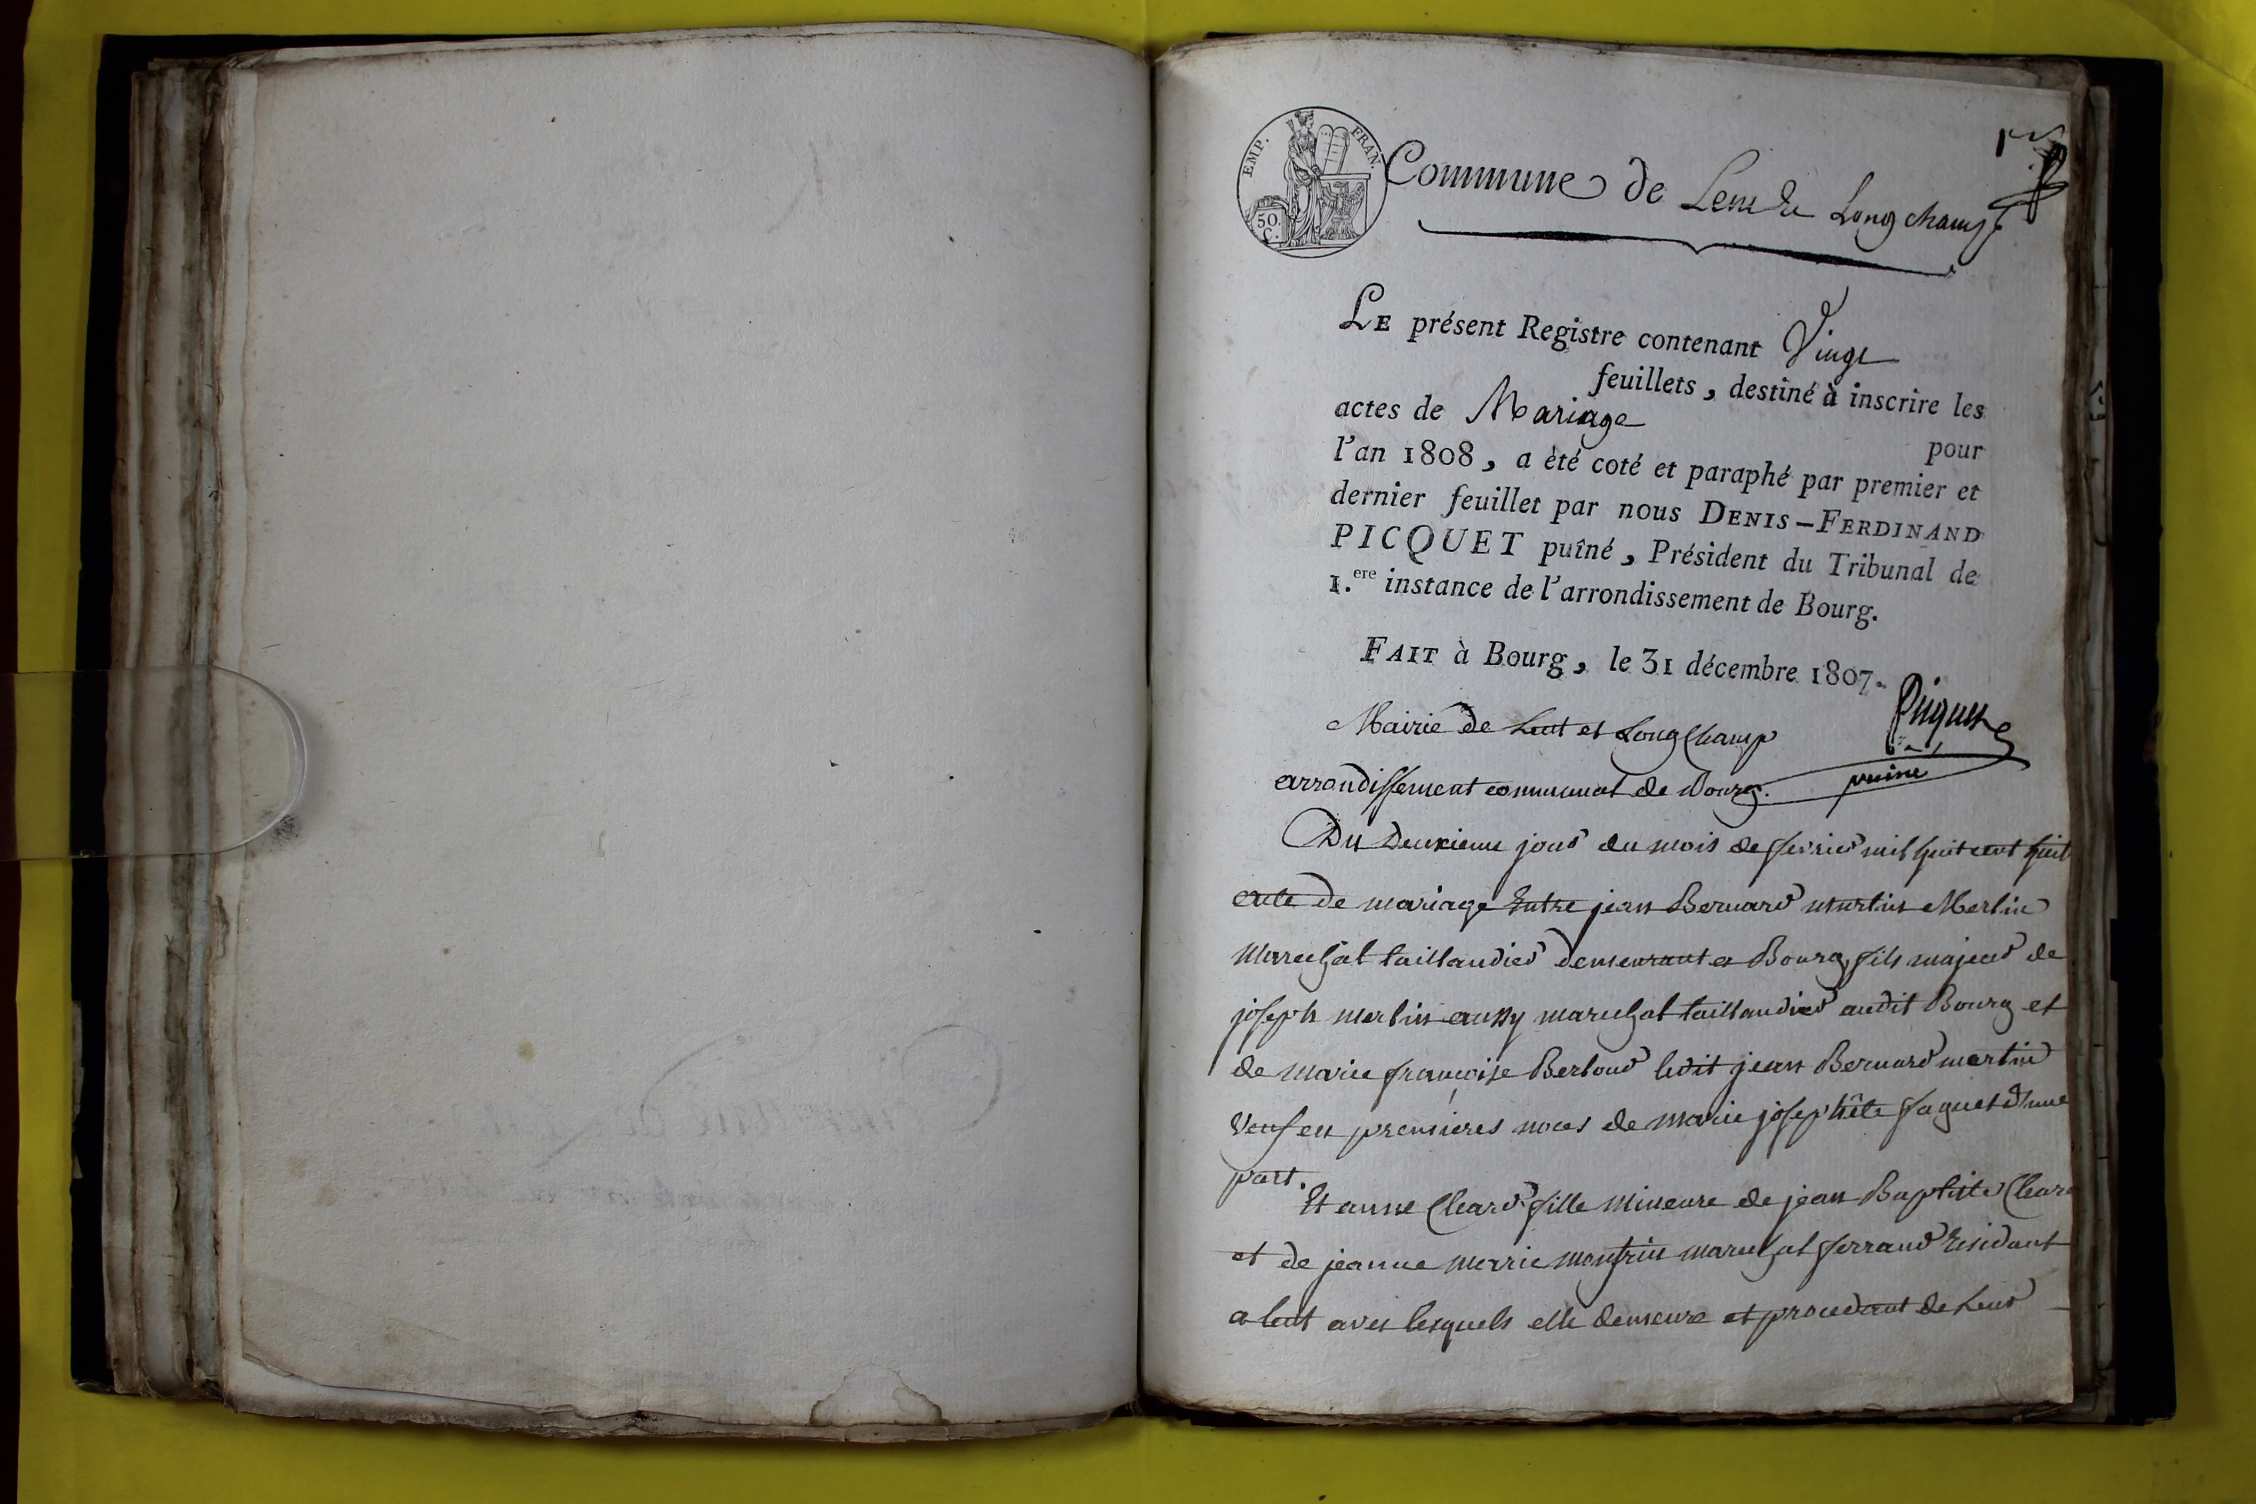 EMP. FRAN.
50.
C.
1er
Commune de Lent & Longchamp
LE présent Registre contenant Vingt
feuillets, destiné à inscrire les
actes de Mariage
pour
l'an 1808, a été coté et paraphé par premier et
dernier feuillet par nous DENIS-FERDINAND
PICQUET puîné, Président du Tribunal de
1.ere instance de l'arrondissement de Bourg.
FAIT à Bourg, le 31 décembre 1807.
Picquet
puiné
Mairie de Lent et LongChamp
arrondissement communal de Bourg.
Du Deuxieme jour du mois de fevrier mil huit cent huit
acte de mariage Entre jean Bernard Merlin
Marechal taillandier demeurant a Bourg, fils majeur de
joseph merlin aussy marechal taillandier audit Bourg et
de marie françoise ledit jean Bernard merlin
Veuf en premieres noces de marie josephte faguet d'une
part.
Et anne Cleard fille mineure de jean Baptiste Cleard
et de jeanne marie marechal ferrand Residant
a lent avec lesquels elle demeure et procedant de leur